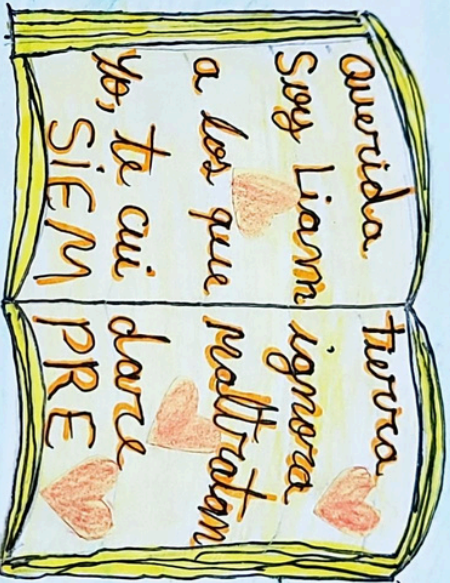 querida tierra
Soy Liam ignora
a los que maltratan
Yo, te cui dare
SIEM PRE